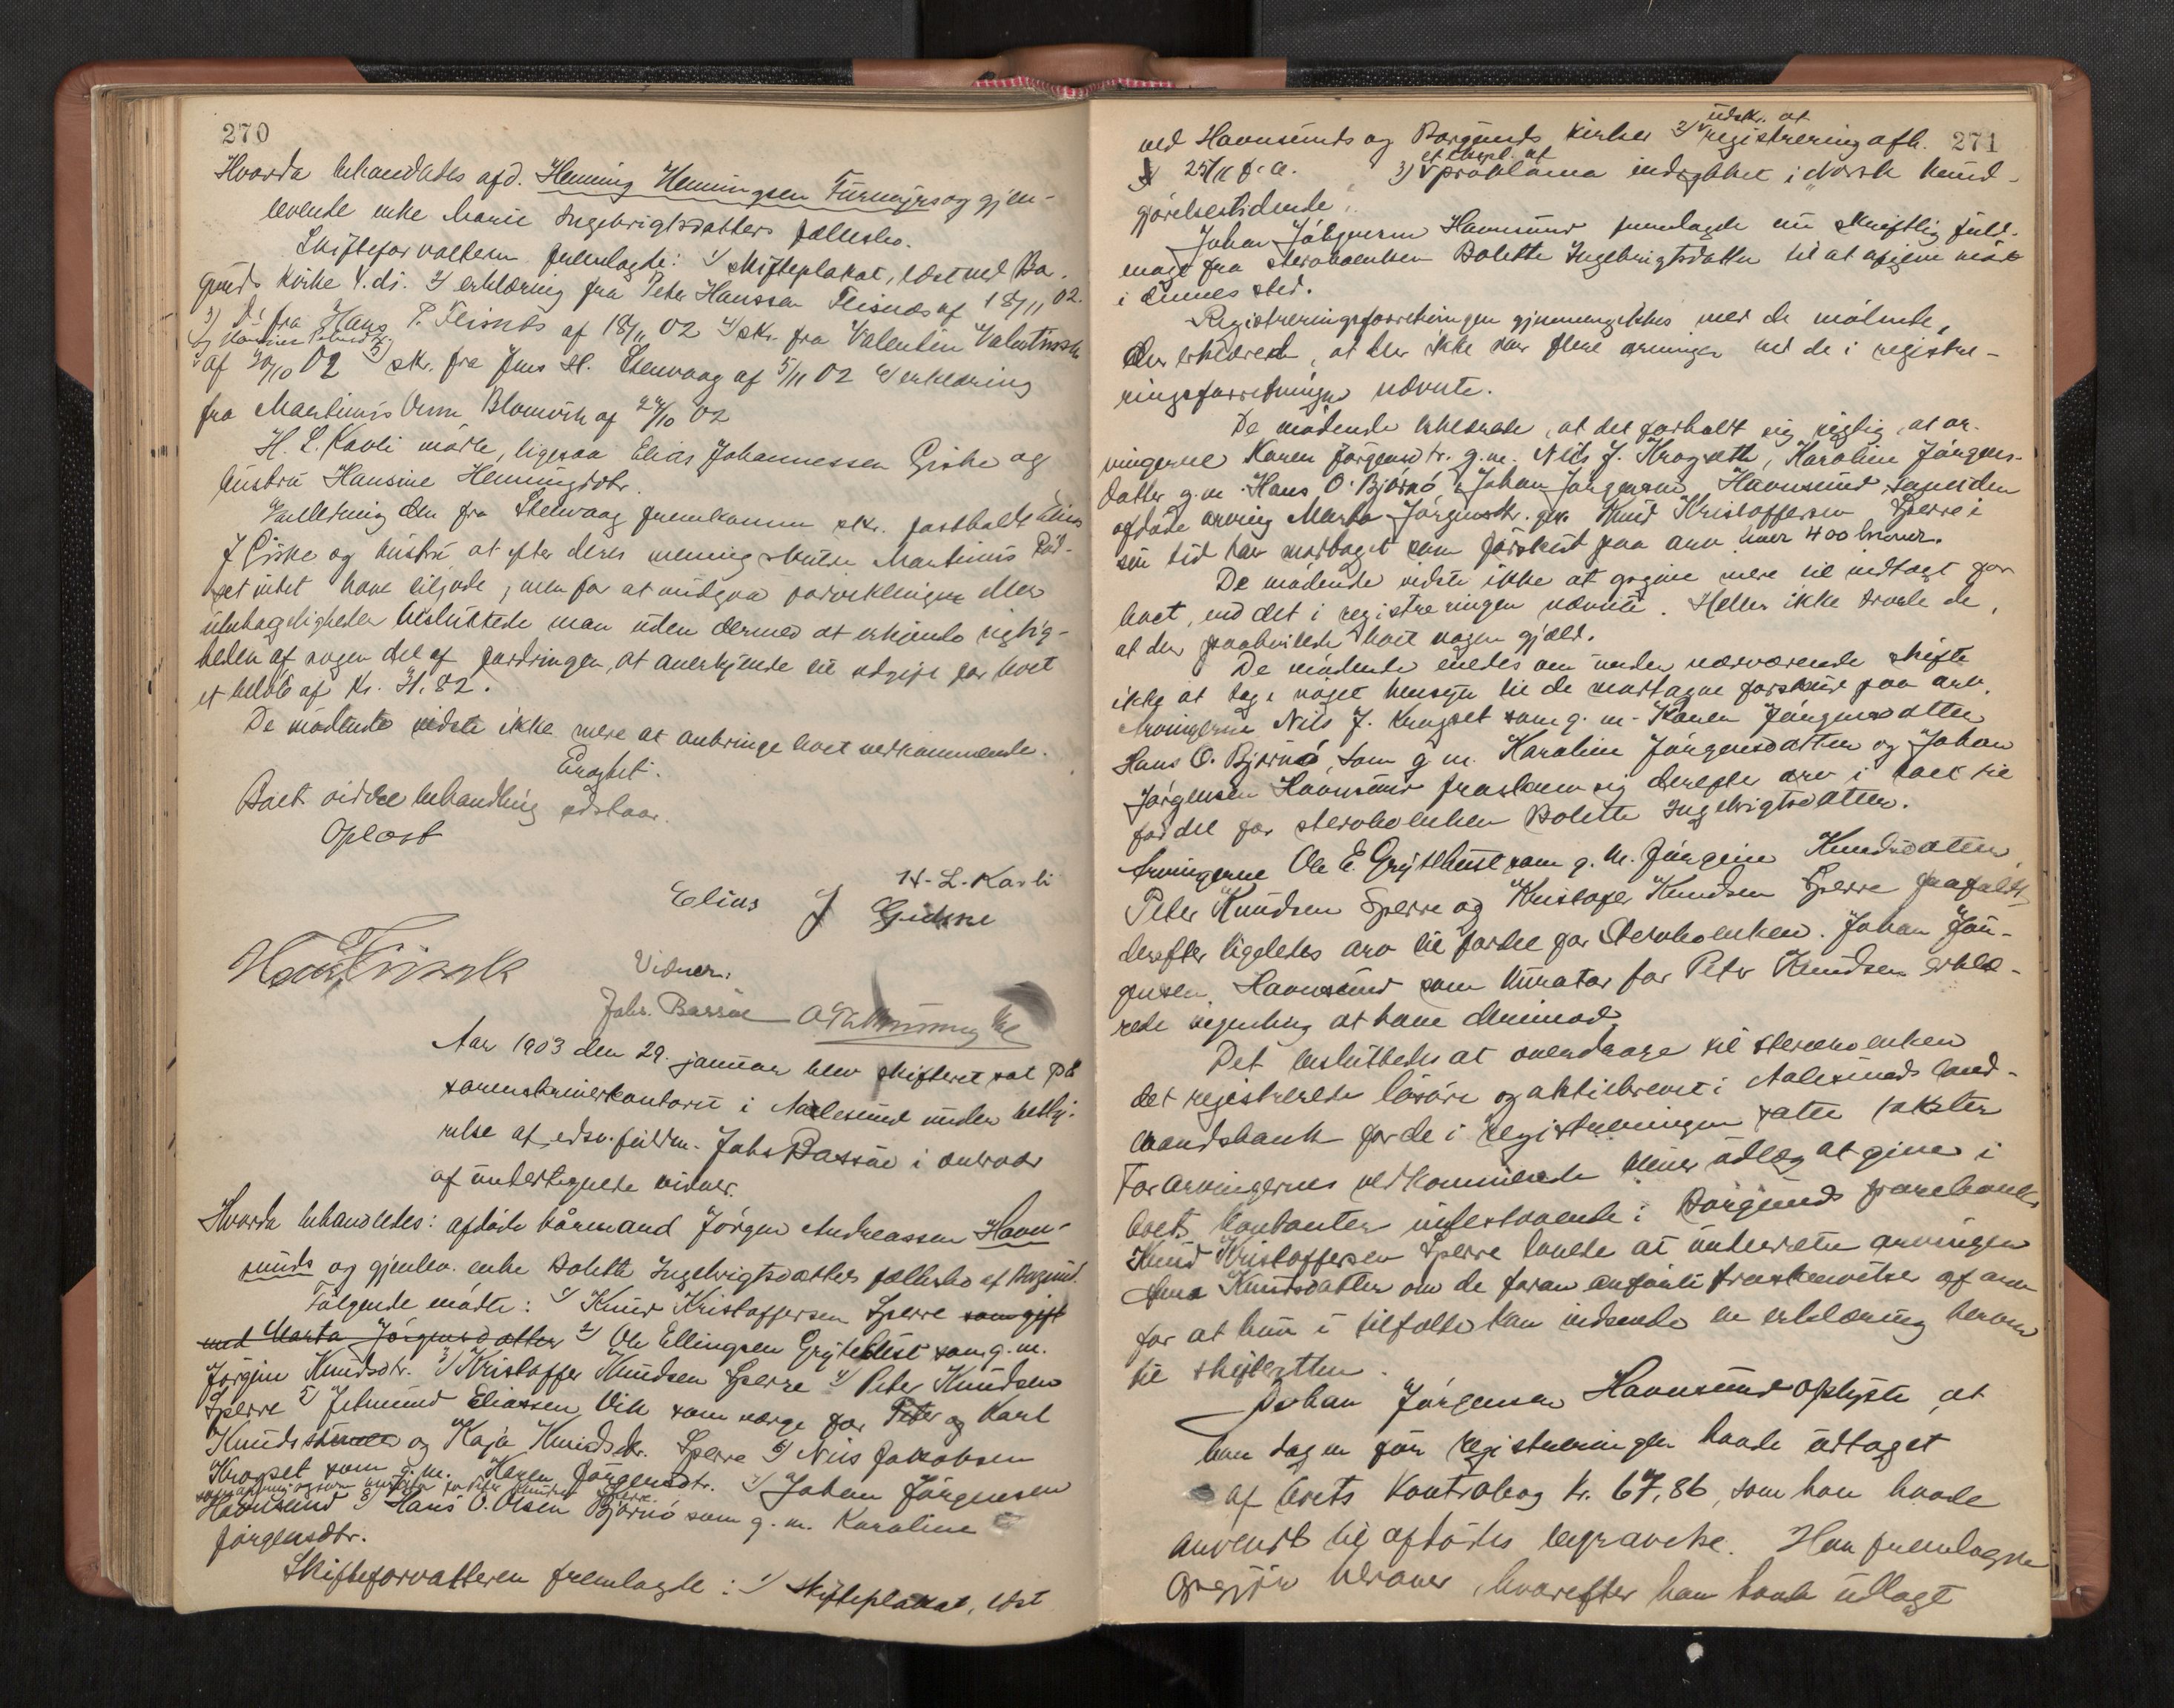 270
Hvorda behandledes afd. Henning Henningsen Furmyrs og gjen-
levende enke Marie Ingebrigtsdatters fællesbo.
Skifteforvalteren fremlagte: 1) skifteplakat, læst ved Bo-
gunds kirke 4. ds. 2) erklæring fra Peter Hanssen Flisnes af 18/11 02.
3) Do fra Hans P. Flisnes af 18/11 02 4) skr. fra Valentin Valentinsen
af 20/10 02 5) skr. fra Jens H. Stenvaag af 5/11 02 6) erklæring
fra Martinus Blomvik af 24/10 02
H. L. Kavli mødte, ligesaa Elias Johannessen Giske og
hustru Hansine Henningsdtr.
I anledning den fra Stenvaag fremkomne skr. fastholdt Elias
J Giske og hustru at efter deres mening skulde Martinus Rød-
set intet have tilgode, men for at undgaa forviklinger eller
ubehageligheder besluttede man uden dermed at erkjende rigtig-
heden af nogen del af fordringen, at anerkjende til udgift for boet
et beløb af Kr. 31,82.
De mødende vidste ikke mere at anbringe boet vedkommende.
Eragtet:
Boets videre behandling udstaar.
Oplæst
H. L. Kavli
Elias J Gidske
Vidner:
Johs. Bassøe
Aar 1903 den 29. januar blev skifteret sat paa
sorenskriverkontoret i Aalesund under besty-
relse af edsv. fuldm. Johs Bassøe i overvær
af undertegnede vidner.
Hvorda behandledes: afdøde kårmand Jørgen Andreassen Havn-
sunds og gjenlev. enke Bolette Ingebrigtsdatters fællesbo af Borgund.
Følgende mødte: 1) Knud Kristoffersen Sperre som gift
med Marta Jørgensdatter 2) Ole Ellingsen Grytehust som g. m.
Jørgine Knudsdtr. 3) Kristoffer Knudsen Sperre 4) Peter Knudsen
Sperre 5) Jetmund Eliassen Vik som værge for Peter og Karl
Knuds og Kaja Knudsdtr. Sperre 6) Nils Jakobsen
Krogset som g. m. Karen Jørgensdtr. 7) Johan Jørgensen
som arving og som kurator for Peter Knudsen Sperre.
Havnsund 8) Hans O. Olsen Bjørnø som g. m. Karoline
Jørgensdtr.
Skifteforvalteren fremlagde: 1) Skifteplakat, læst
271
udskr. af
ved Havnsunds og Borgunds kirker 2) registrering afh.
et expl. af
25/11 f. a. 3) proklama indrykket i "Norsk Kund-
gjørelsestidende".
Johan Jørgensen Havnsund fremlagde en skriftlig fuld-
magt fra stervboenken Bolette Ingebrigtsdatter til at afgive møde
i hendes sted.
Registreringsforretningen gjennemgikkes med de mødende,
der erklærede, at der ikke var flere arvinger end de i registre-
ringsforretningen nævnte.
De mødende erklærede, at det forholdt sig rigtig, at ar-
vingerne Karen Jørgensdtr. g. m. Nils J. Krogseth, Karoline Jørgens-
datter g. m. Hans O. Bjørnø, Johan Jørgensen Havnsund samt den
afdøde arving Marta Jørgensdtr. g. m. Knud Kristoffersen Sperre i
sin tid har modtaget som forskud paa arv hver 400 kroner.
De mødende vidste ikke at opgive mere til indtægt for
boet, end det i registreringen nævnte. Heller ikke troede de,
at der paahvilede boet nogen gjæld.
De mødende enedes om under nærværende skifte
ikke at tage noget hensyn til de modtagne forskud paa arv.
Arvingerne Nils J. Krogset som g. m. Karen Jørgensdatter
Hans O. Bjørnø, som g. m. Karoline Jørgensdatter og Johan
Jørgensen Havnsund fraskrev sig derefter arv i boet til
fordel for stervboenken Bolette Ingebrigtsdatter.
Arvingerne Ole E. Grytehust som g. m. Jørgine Knudsdatter,
Peter Knudsen Sperre og Kristofer Knudsen Sperre frafaldt
derefter ligeledes arv til fordel for stervboenken. Johan Jør-
gensen Havnsund som kurator for Peter Knudsen erklæ-
rede ingenting at have derimod.
Det besluttedes at overdrage til stervboenken
det registrerede løsøre og aktiebrevet i Aalesunds land-
mandsbank for de i registreringen satte takster
For arvingernes vedkommende bliver udlæg at give i
boets kontanter indestaaende i Borgunds sparebank.
Knud Kristoffersen Sperre lovede at underrette arvingen
Knudsdatter om de foran anførte fraskrivelser af arv
for at hun i tilfælde kan indsende en erklæring herom
til skifteretten.
Johan Jørgensen Havnsund oplyste, at
han dagen før registreringen havde udtaget
af boets Kontrabog Kr. 67,86, som han havde
anvendt til afdødes begravelse. Han fremlagde
opgjør herover, hvorefter han havde udlagt